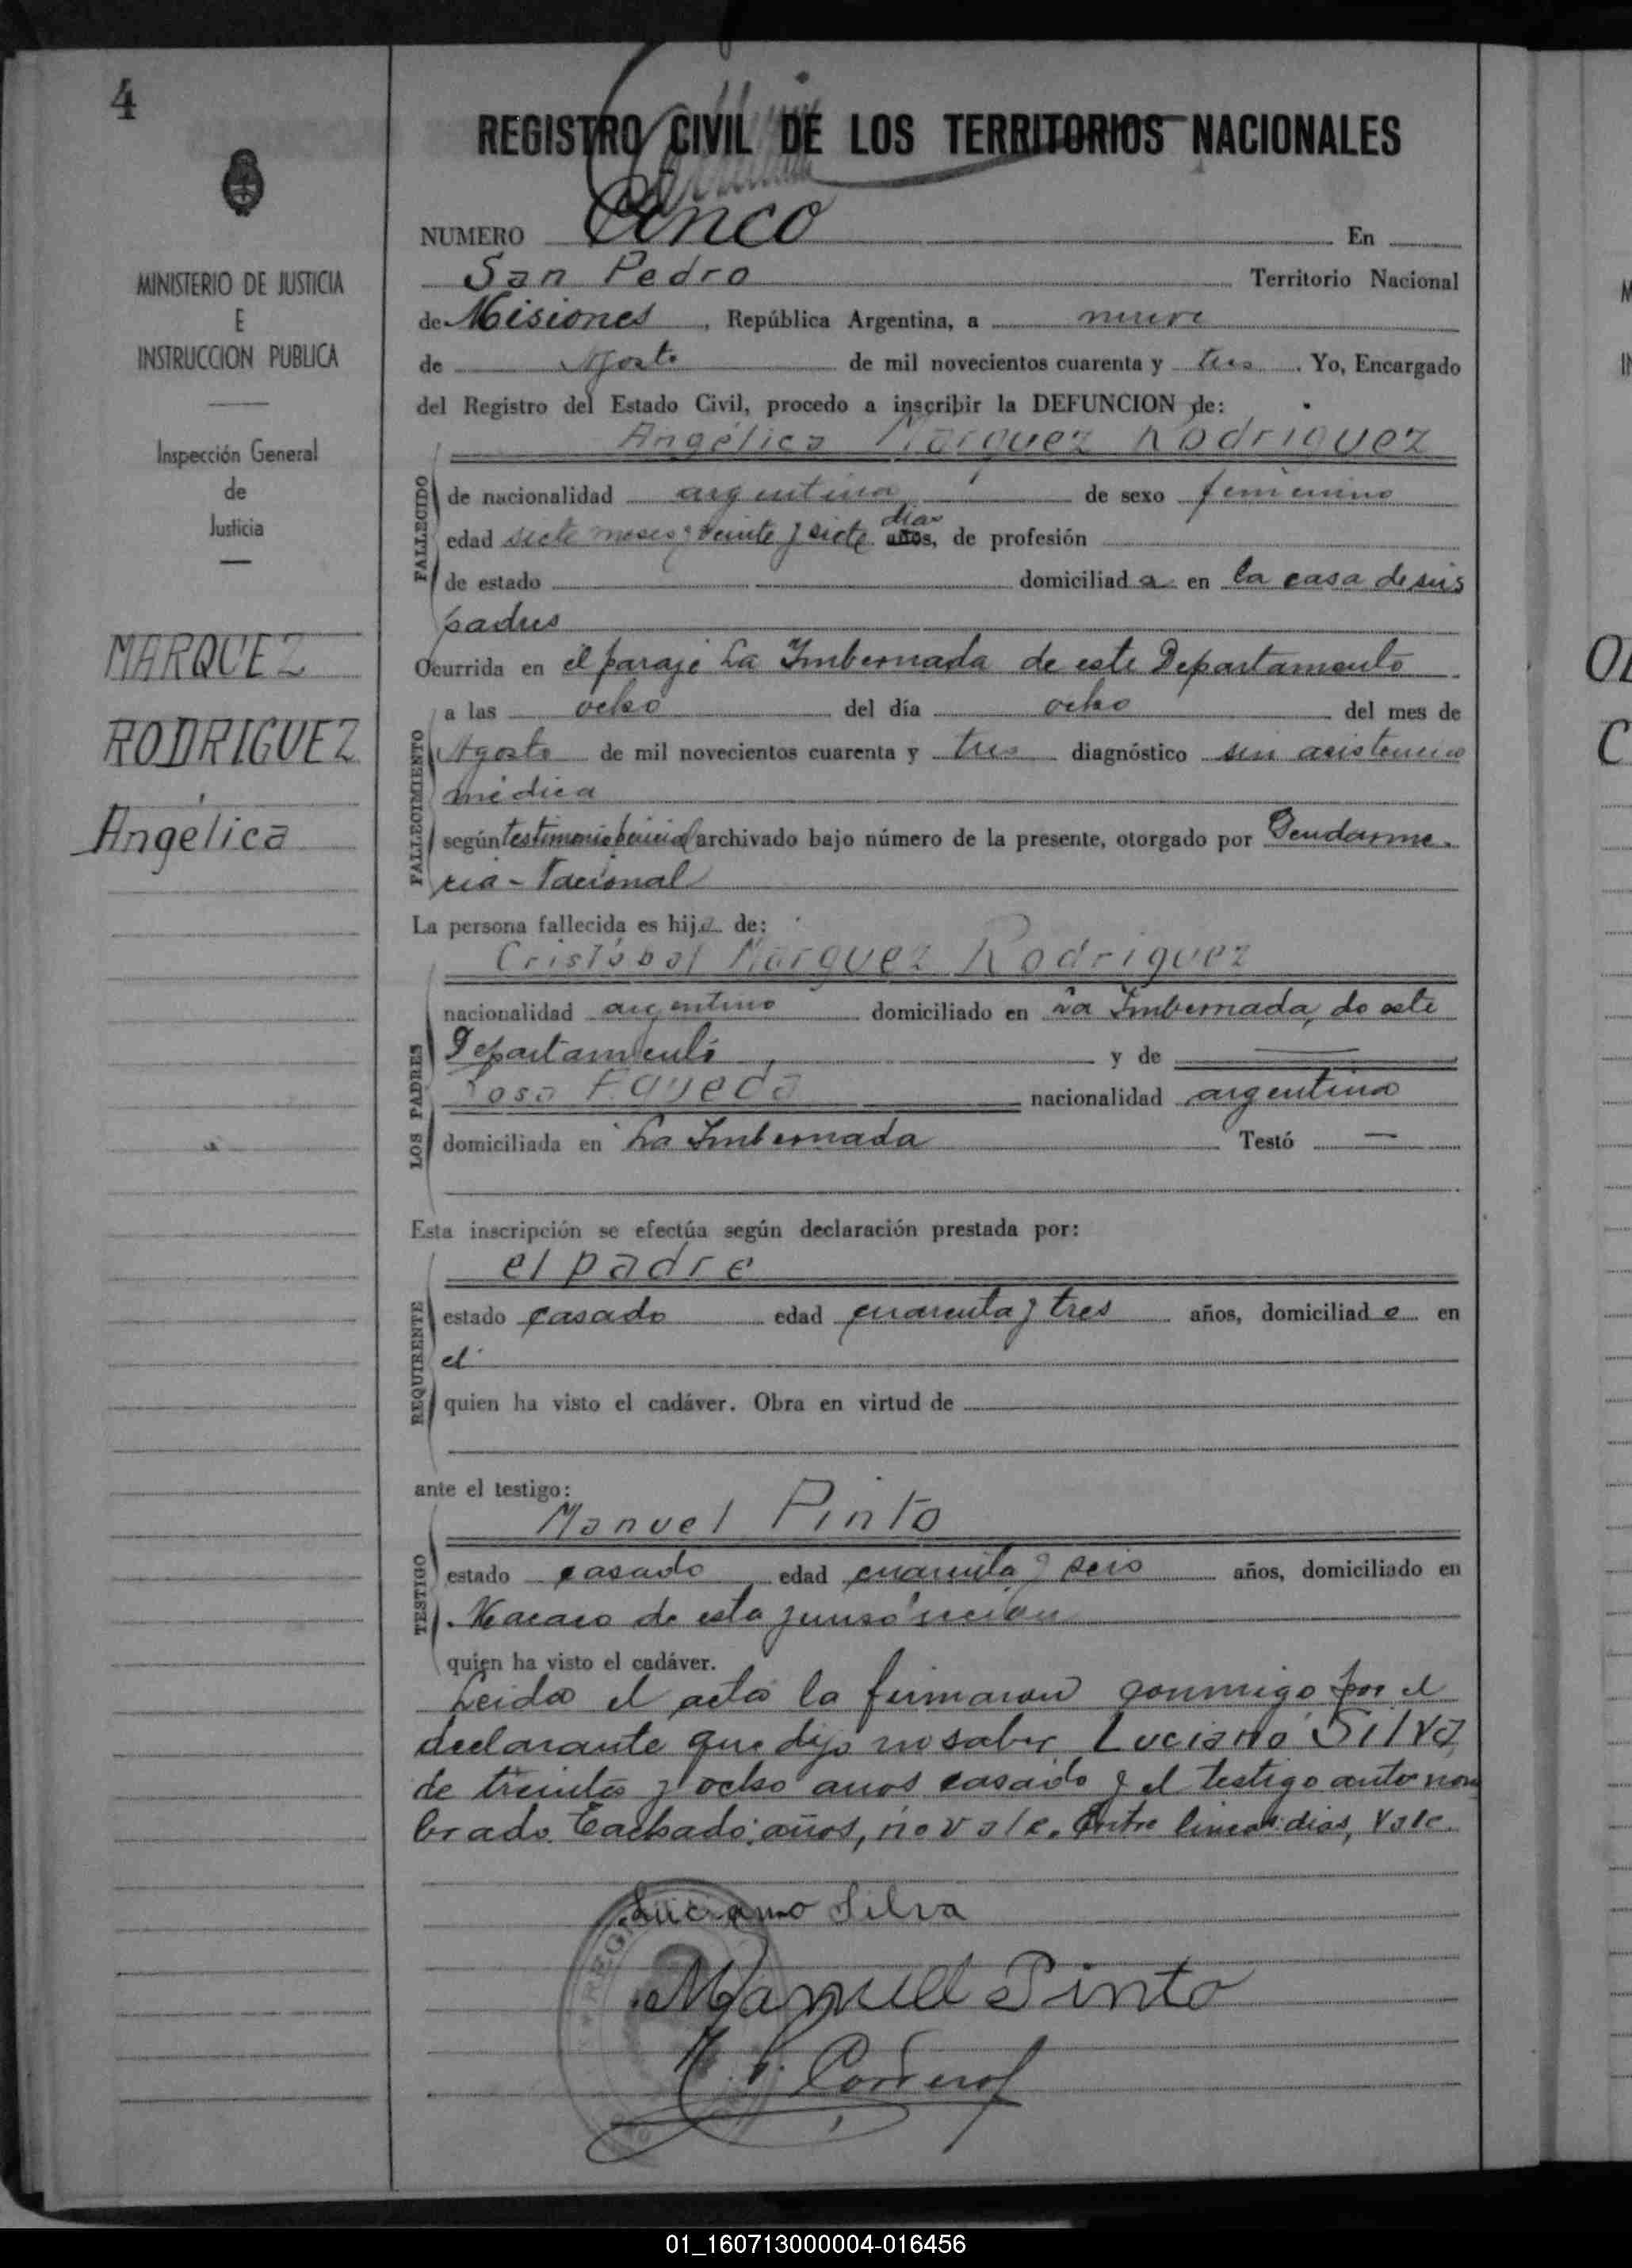 4
MINISTERIO DE JUSTICIA
E
INSTRUCCION PUBLICA
Inspección General
de
Justicia
MARQUEZ
RODRIGUEZ
Angélica
REGISTRO CIVIL DE LOS TERRITORIOS NACIONALES
NUMERO Cinco En
San Pedro Territorio Nacional
de Misiones, República Argentina, a nueve
de Agosto de mil novecientos cuarenta y tres. Yo, Encargado
del Registro del Estado Civil, procedo a inscribir la DEFUNCION de:
Angélica Marquez Rodriguez
FALLECIDO
de nacionalidad argentina de sexo femenino
días
edad siete meses y veinte y siete años, de profesión
de estado domiciliad a en la casa de sus
padres
Ocurrida en el paraje La Imbernada de este Departamento
FALLECIMIENTO
a las ocho del día ocho del mes de
Agosto de mil novecientos cuarenta y tres diagnóstico sin asistencia
médica
según testimonio policial archivado bajo número de la presente, otorgado por Gendarme-
ria-Nacional
La persona fallecida es hija de:
Cristóbal Marquez Rodriguez
LOS PADRES
nacionalidad argentino domiciliado en La Imbernada, de este
Departamento, y de
Rosa nacionalidad argentina
domiciliada en La Imbernada Testó —
Esta inscripción se efectúa según declaración prestada por:
el padre
REQUIRENTE
estado casado edad cuarenta y tres años, domiciliad o en
el
quien ha visto el cadáver. Obra en virtud de
ante el testigo:
Manuel Pinto
TESTIGO
estado casado edad cuarenta y seis años, domiciliado en
de esta
quien ha visto el cadáver.
Leida el acta la firmaron conmigo por el
declarante que dijo no saber Luciano Silva
de treinta y ocho anos casado y el testigo antes nom
brado. Tachado: años, no vale. Entre lineas: dias, vale.
Luciano Silva
Manuel Pinto
01_160713000004-016456